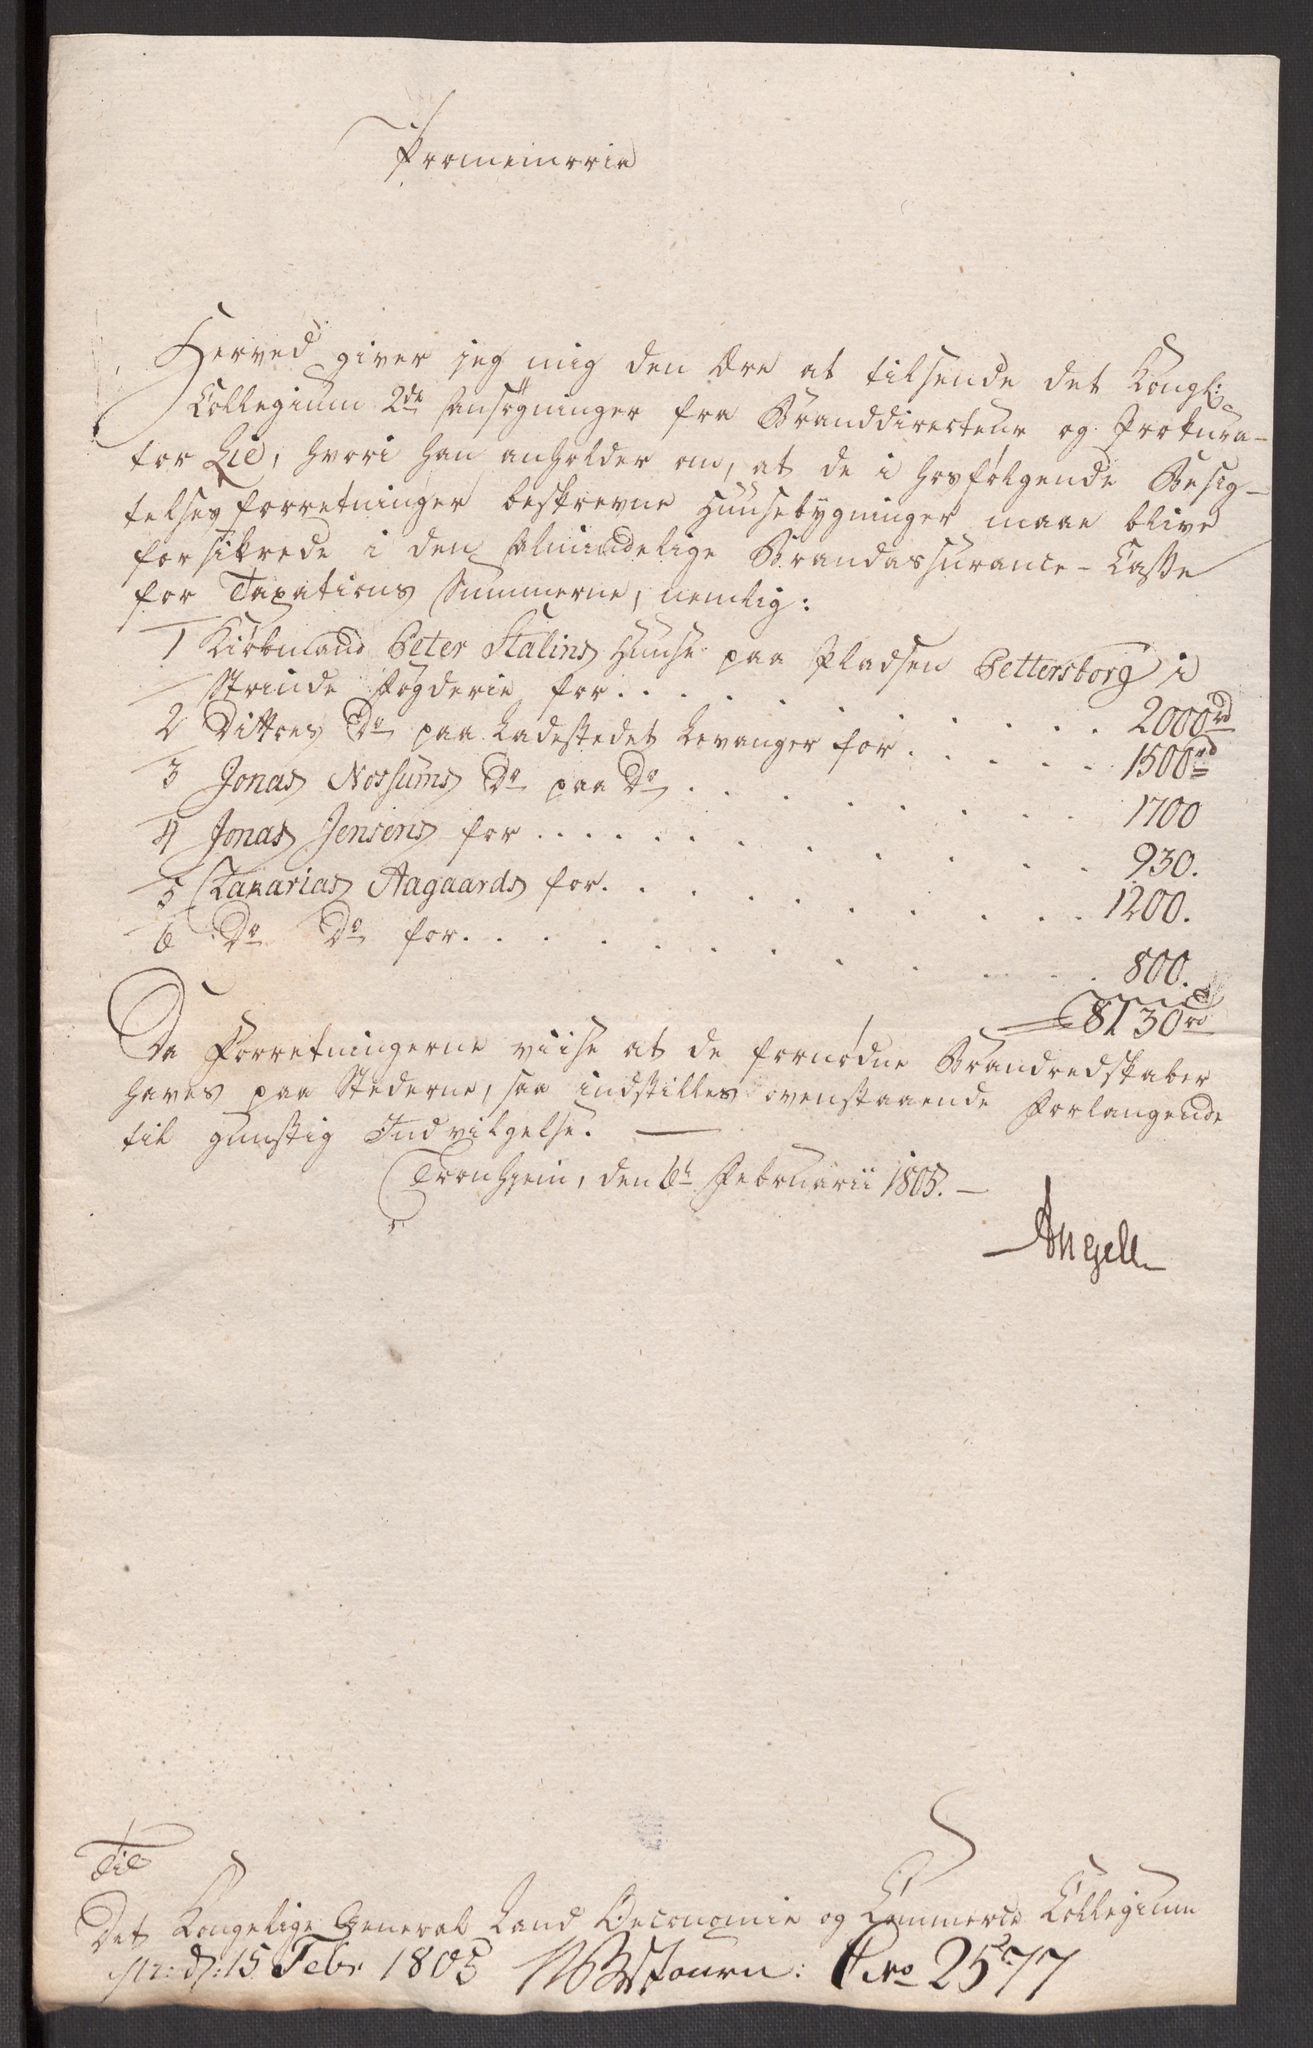 Promemoria
Herved giver jeg mig den Ære at tilsende det Kongl:
Collegium 2de Ansøgninger fra Branddirecteur og Prokura-
tor Lie, hvori han anholder om, at de i hosfølgende Besig-
telses forretninger beskrevne Huusebygninger maae blive
forsikrede i den almindelige Brandassurance-Casse
for Taxations Summerne, nemlig:
1 Kiøbmand Peter Stalins Huuse paa Pladsen Pettersborg i
Strinde Fogderie for . . . . . . . . . 2000rd
2 Dittoes Do paa Ladestedet Levanger for . . . . . 1500rd
3 Jonas Nossums Do paa Do . . . . . . . . 1700
4 Jonas Jensens for . . . . . . . . . . 930.
5 Zakarias Aagaards for . . . . . . . . . 1200.
6 Do Do for . . . . . . . . . . 800.
8130rd
Da Forretningerne viise at de fornødne Brandredskaber
haves paa Stederne, saa indstilles ovenstaaende Forlangende
til gunstig Indvilgelse. —
Tronhjem, den 6te Februarii 1805. —
Angell
Til
Det Kongelige General Land Oeconomie og Commerce Collegium
pr: d: 15 Febr 1805 Journ: No 2577